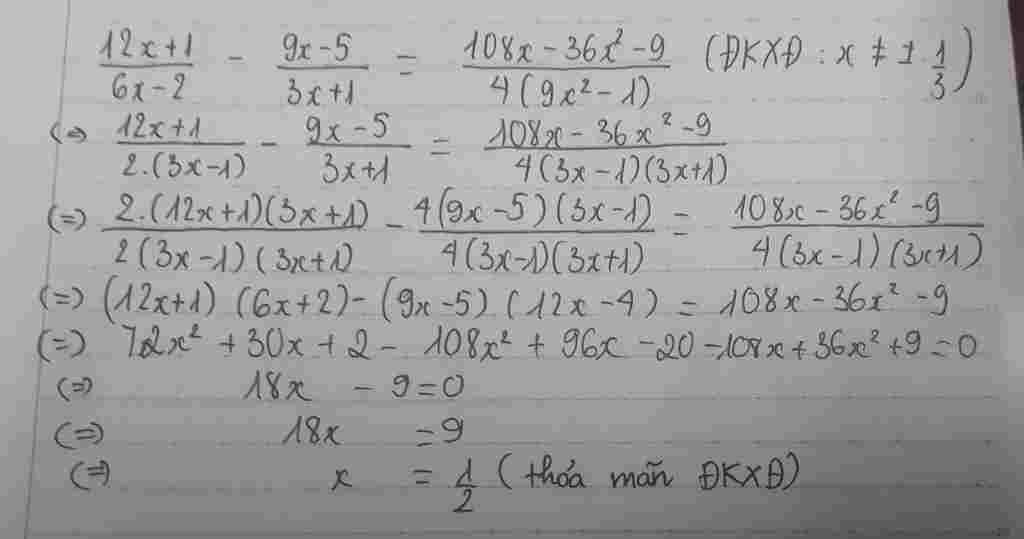 (12x+1)/(6x-2) - (9x-5)/(3x+1) = (108x-36x²-9)/(4(9x²-1)) (ĐKXĐ : x ≠ ± 1/3)
(=) (12x+1)/(2.(3x-1)) - (9x-5)/(3x+1) = (108x-36x²-9)/(4(3x-1)(3x+1))
(=) (2.(12x+1)(3x+1))/(2(3x-1)(3x+1)) - (4(9x-5)(3x-1))/(4(3x-1)(3x+1)) = (108x-36x²-9)/(4(3x-1)(3x+1))
(=) (12x+1) (6x+2)-(9x-5) (12x-4) = 108x-36x²-9
(=) 72x² +30x+2- 108x² + 96x -20-108x+36x²+9=0
(=) 18x - 9=0
(=) 18x =9
(=) x = 1/2 (thỏa mãn ĐKXĐ)